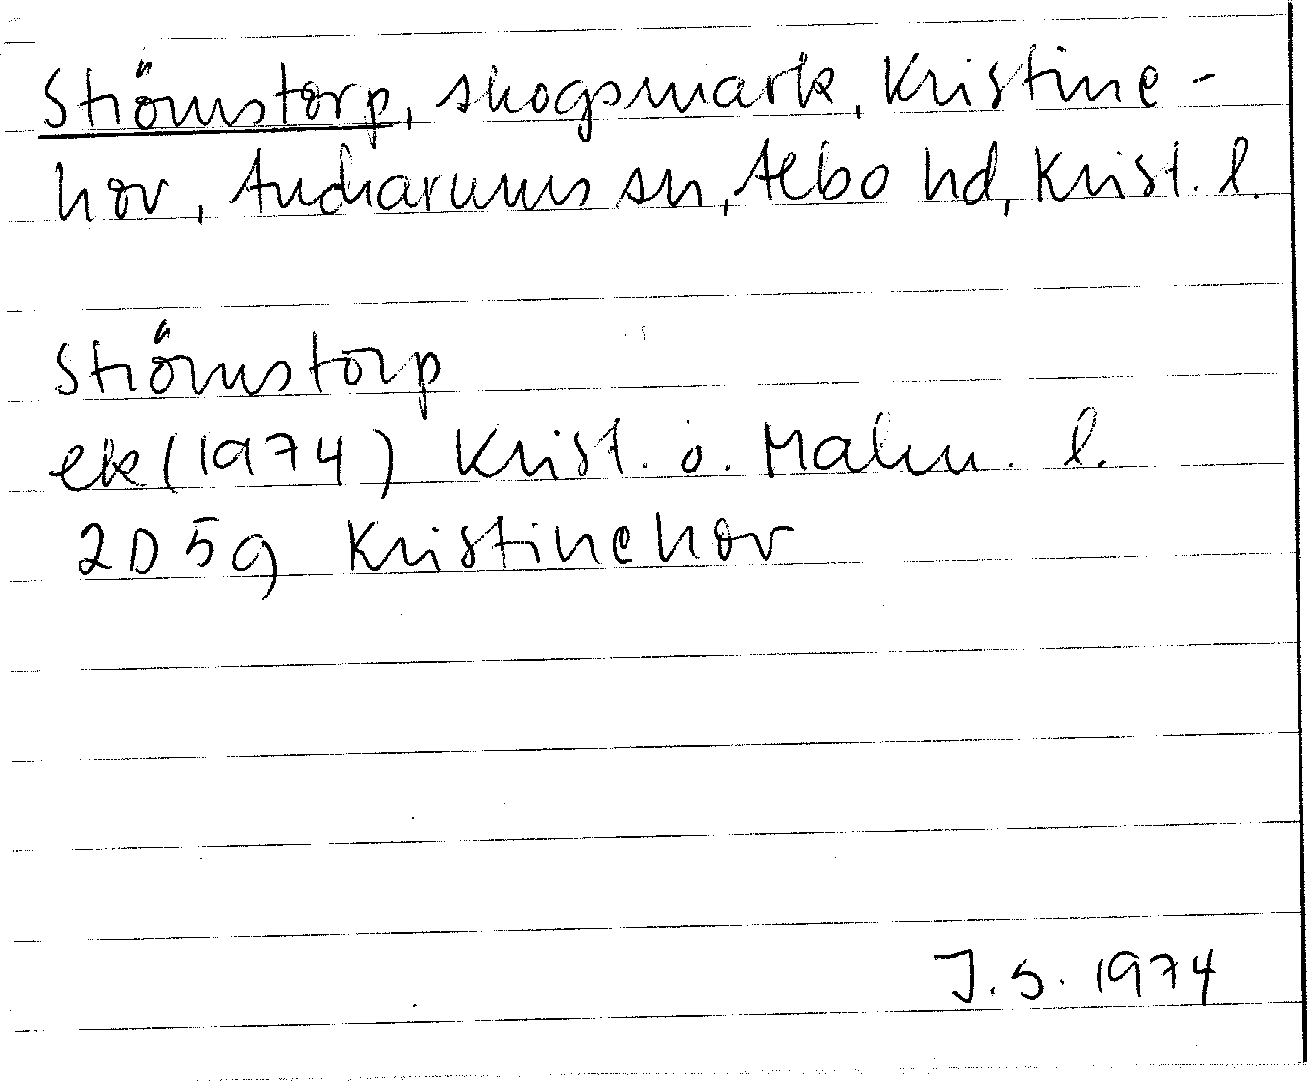 Strömstorp, skogsmark, Kristine-
hov, Andrarums sn, Albo hd, Krist. l.
Strömstorp
ek (1974) Krist. o. Malm. l.
2D 5g Kristinehov
J.S. 1974